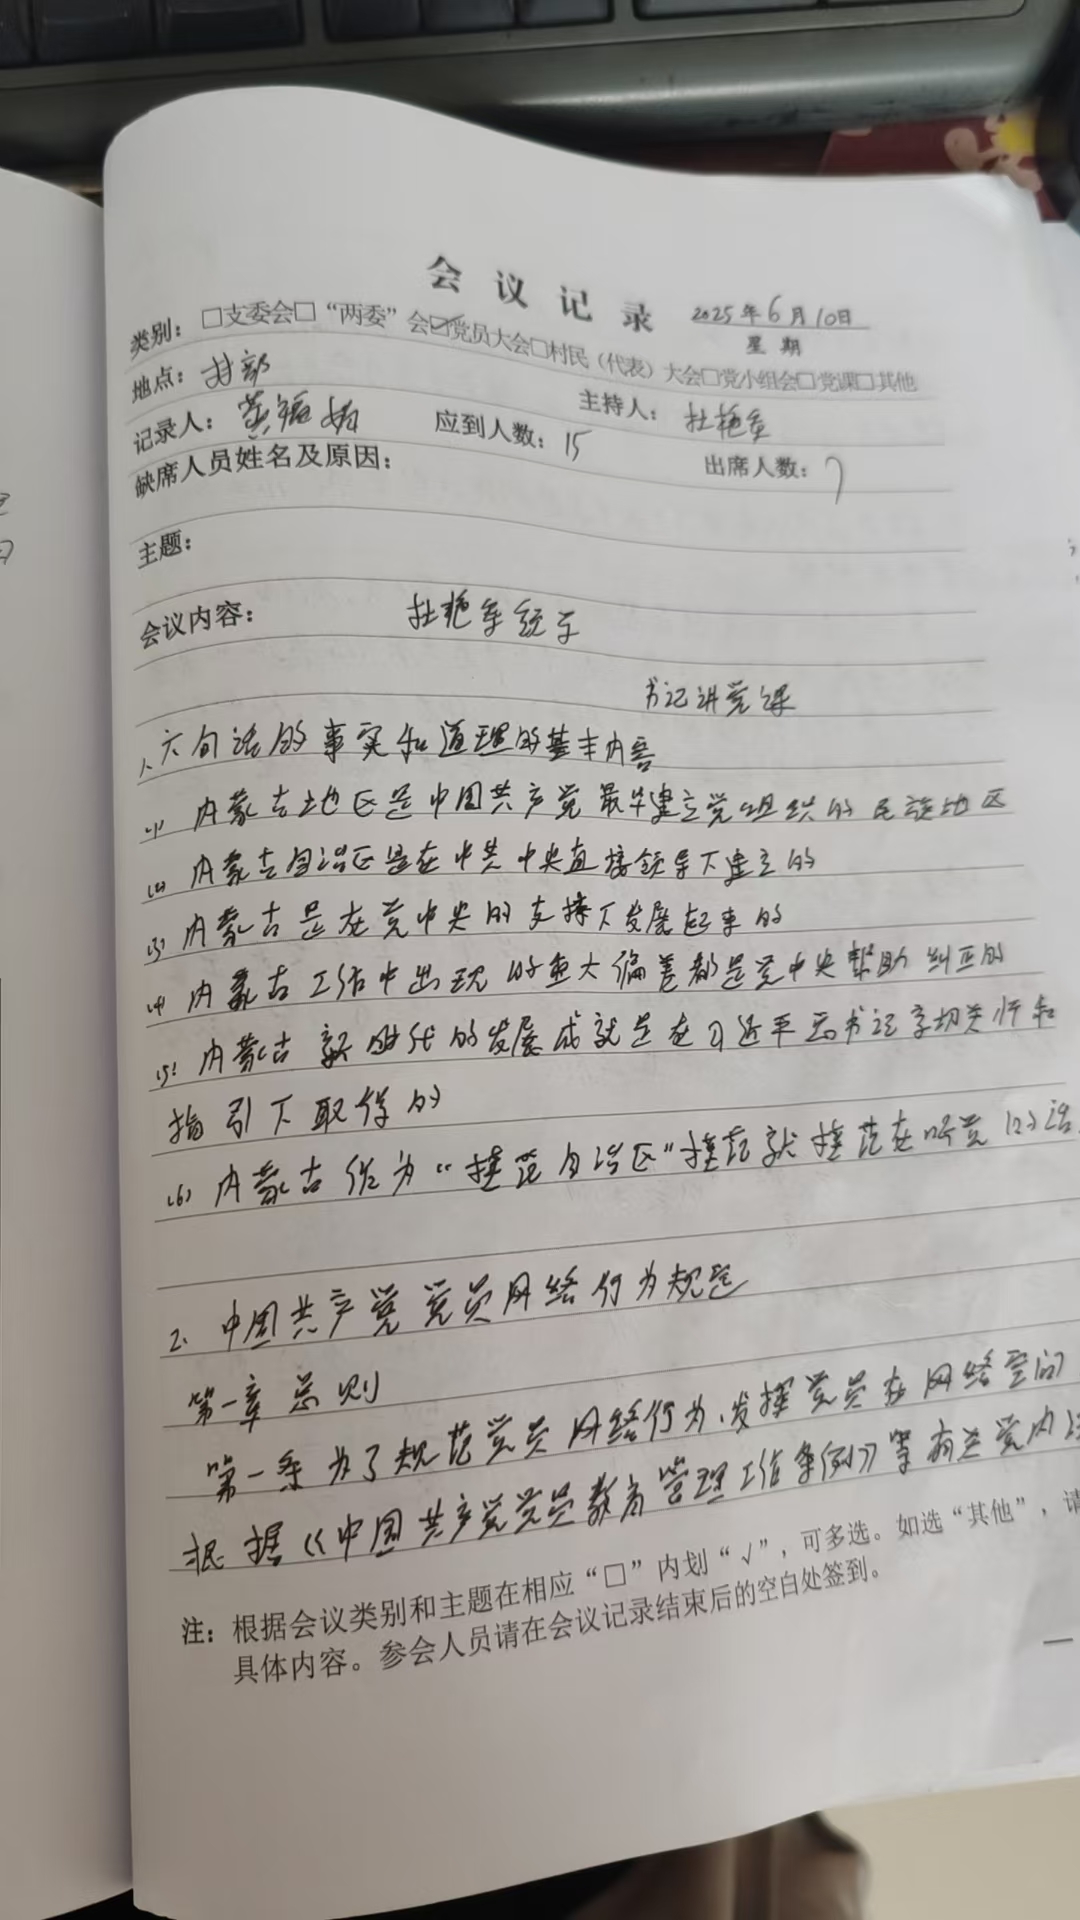 会议记录 2025年6月10日
星期
类别：□支委会□“两委”会☑党员大会□村民（代表）大会□党小组会□党课□其他
地点：村部
记录人： 应到人数：15 主持人：杜艳
缺席人员姓名及原因： 出席人数：7
主题：
会议内容： 杜艳
书记讲党课
1、六句话的事实和道理的基本内容
(1) 内蒙古地区是中国共产党最早建立党组织的民族地区
(2) 内蒙古自治区是在中共中央直接领导下建立的
(3) 内蒙古是在党中央的支持下发展起来的
(4) 内蒙古工作中出现的重大偏差都是党中央帮助纠正的
(5) 内蒙古新时代的发展成就是在习近平总书记亲切关怀和
指引下取得的
(6) 内蒙古作为“模范自治区”模范就模范在听党的话
2、中国共产党党员网络行为规定
第一章总则
第一条 为了规范党员网络行为，发挥党员在网络空间
根据《中国共产党党员教育管理工作条例》等有关党内法
注：根据会议类别和主题在相应“□”内划“√”，可多选。如选“其他”，请
具体内容。参会人员请在会议记录结束后的空白处签到。